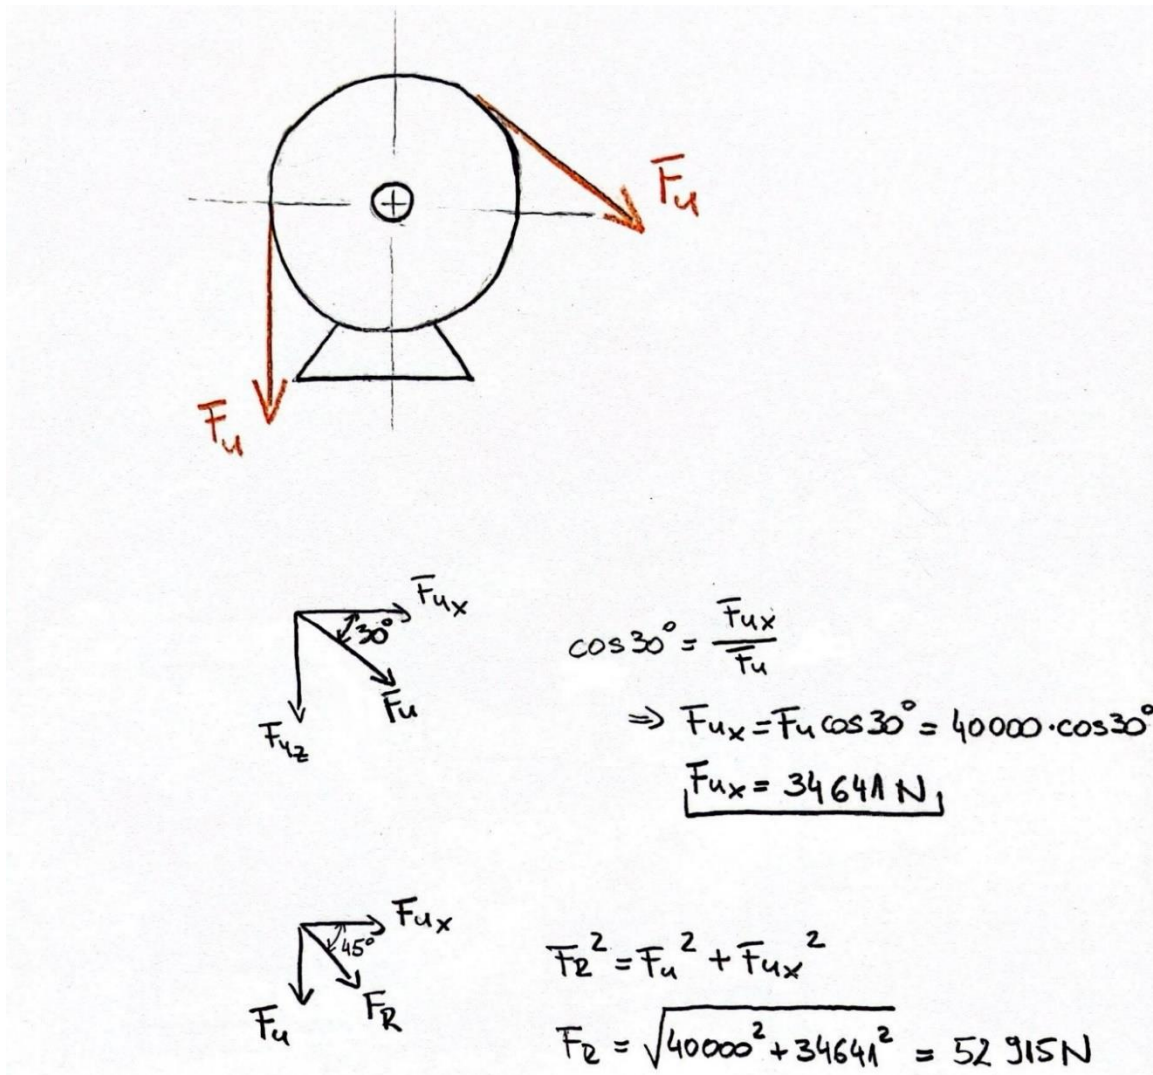 F̅u
F̅u
F̅ux
30°
F̅u
F̅uz
cos30° = F̅ux / F̅u
⇒ F̅ux = F̅u cos30° = 40000·cos30°
F̅ux = 34641 N
F̅ux
45°
F̅R
F̅u
F̅R² = F̅u² + F̅ux²
F̅R = √40000² + 34641² = 52 915N